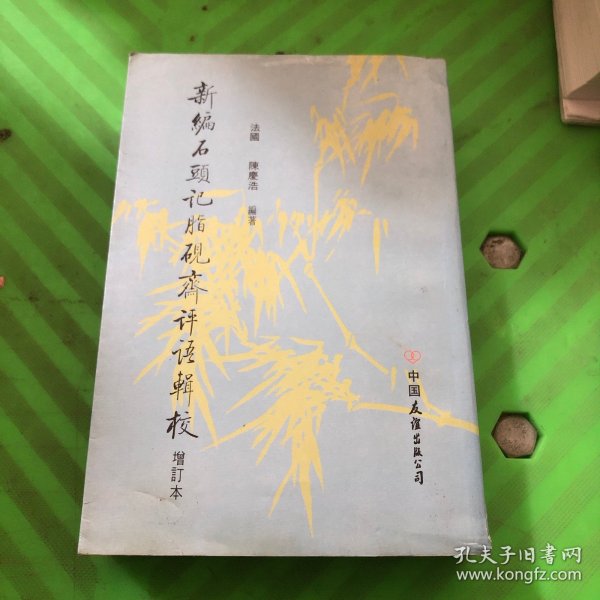 新編石頭記脂硯齋评语輯校
增訂本
法國 陳慶浩 編著
中国友谊出版公司
孔夫子旧书网
www.kongfz.com